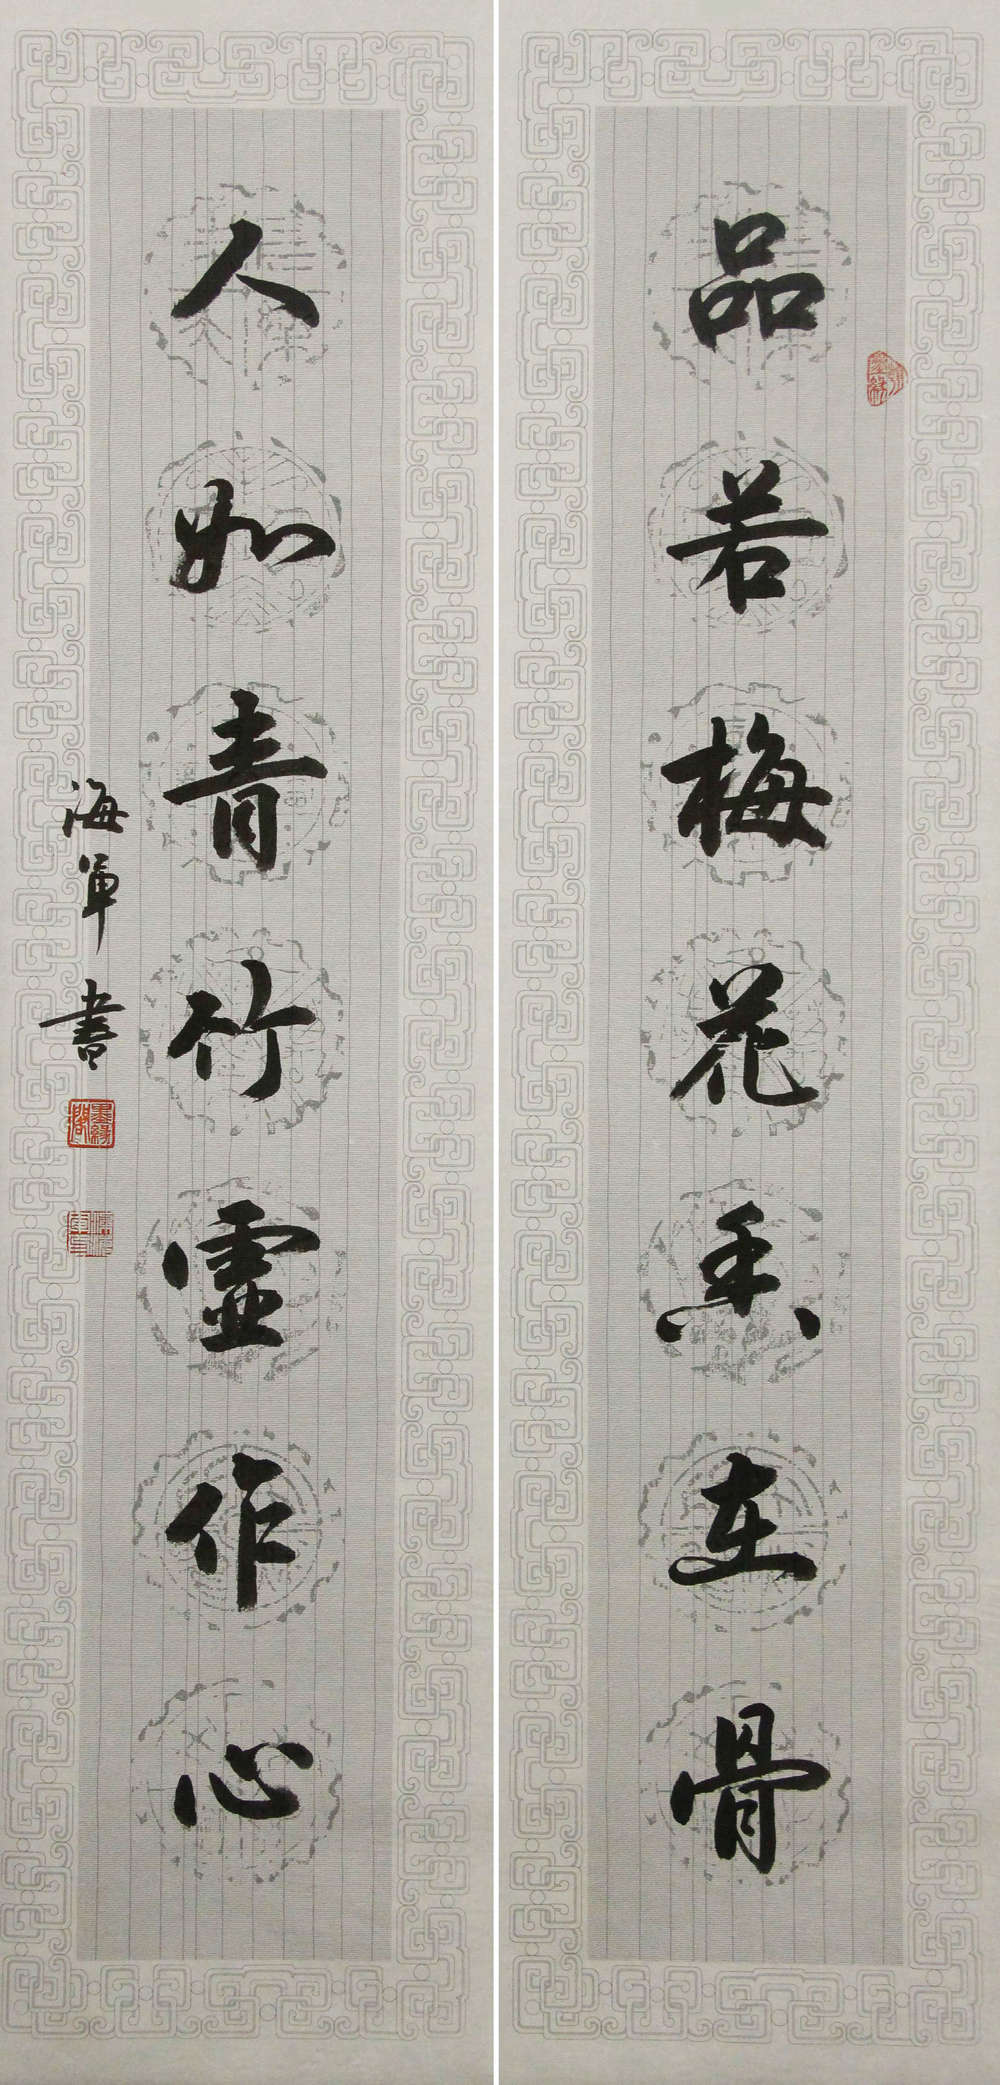 品若梅花香在骨
人如青竹虛作心
海軍書